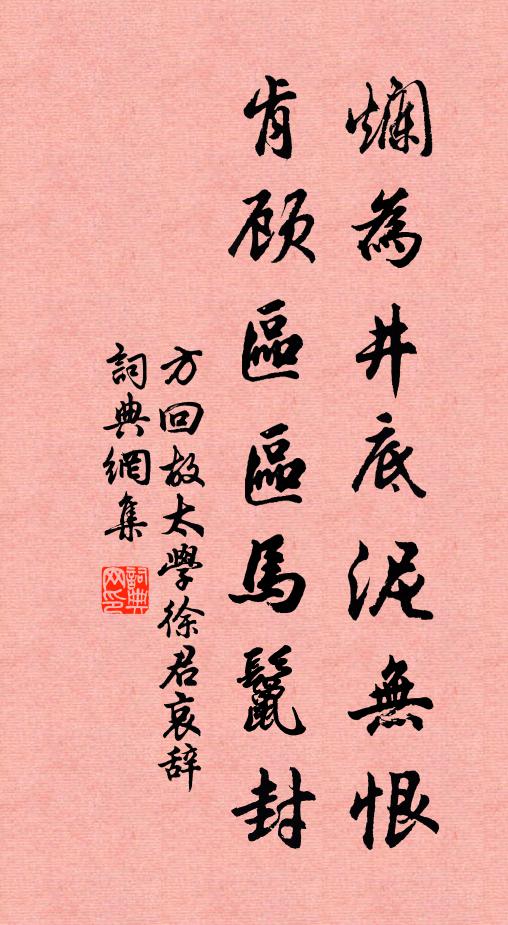 爛為井底泥無恨
肯顧區區馬鬣封
方回故太學徐君哀辞
詞典網集
詞典網印